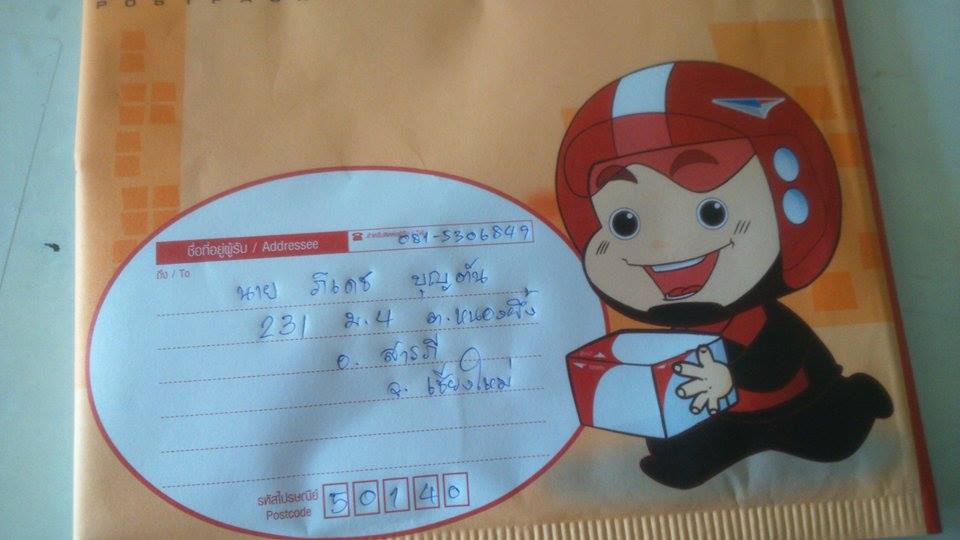 ชื่อที่อยู่ผู้รับ / Addressee
081-5306849
ถึง / To
นาย ภิเดช บุญตัน
231 ม.4 ต.หนองผึ้ง
อ. สารภี
จ. เชียงใหม่
รหัสไปรษณีย์ 50140
Postcode